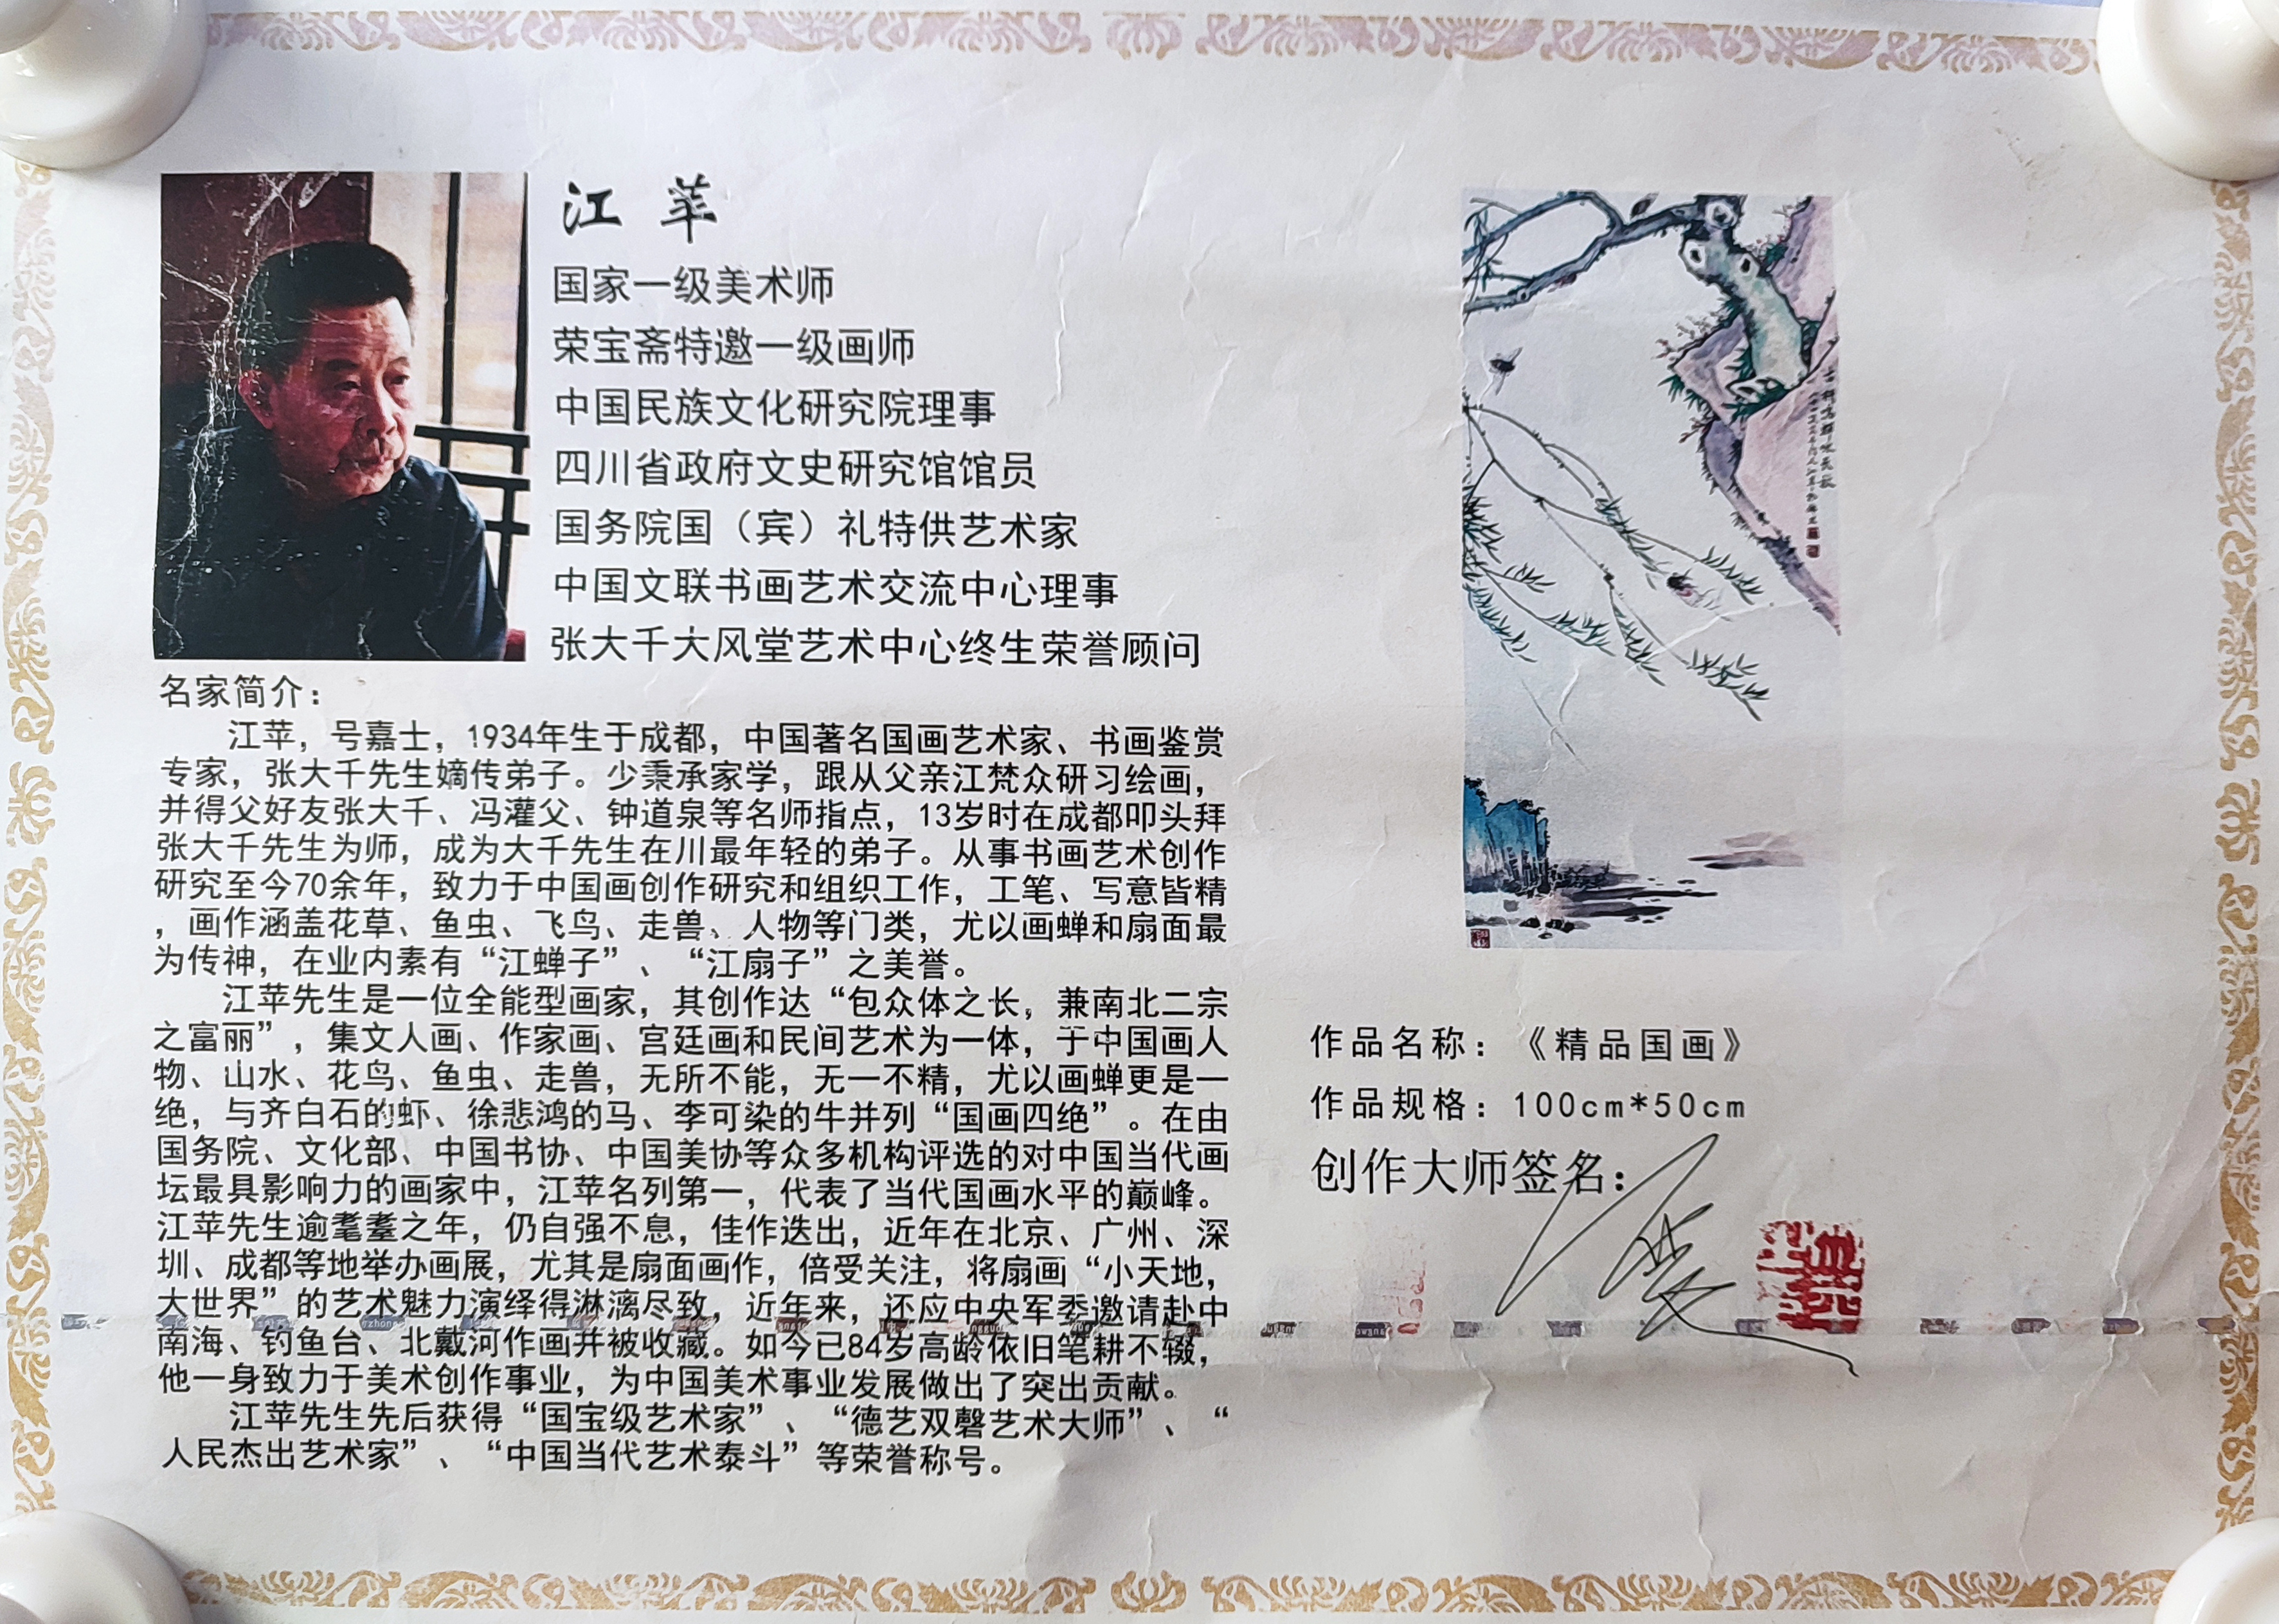 江苹
国家一级美术师
荣宝斋特邀一级画师
中国民族文化研究院理事
四川省政府文史研究馆馆员
国务院国（宾）礼特供艺术家
中国文联书画艺术交流中心理事
张大千大风堂艺术中心终生荣誉顾问
名家简介：
江苹，号嘉士，1934年生于成都，中国著名国画艺术家、书画鉴赏
专家，张大千先生嫡传弟子。少秉承家学，跟从父亲江梵众研习绘画，
并得父好友张大千、冯灌父、钟道泉等名师指点，13岁时在成都叩头拜
张大千先生为师，成为大千先生在川最年轻的弟子。从事书画艺术创作
研究至今70余年，致力于中国画创作研究和组织工作，工笔、写意皆精
，画作涵盖花草、鱼虫、飞鸟、走兽、人物等门类，尤以画蝉和扇面最
为传神，在业内素有“江蝉子”、“江扇子”之美誉。
江苹先生是一位全能型画家，其创作达“包众体之长，兼南北二宗
之富丽”，集文人画、作家画、宫廷画和民间艺术为一体，于中国画人
物、山水、花鸟、鱼虫、走兽，无所不能，无一不精，尤以画蝉更是一
绝，与齐白石的虾、徐悲鸿的马、李可染的牛并列“国画四绝”。在由
国务院、文化部、中国书协、中国美协等众多机构评选的对中国当代画
坛最具影响力的画家中，江苹名列第一，代表了当代国画水平的巅峰。
江苹先生逾耄耋之年，仍自强不息，佳作迭出，近年在北京、广州、深
圳、成都等地举办画展，尤其是扇面画作，倍受关注，将扇画“小天地，
大世界”的艺术魅力演绎得淋漓尽致，近年来，还应中央军委邀请赴中
南海、钓鱼台、北戴河作画并被收藏。如今已84岁高龄依旧笔耕不辍，
他一身致力于美术创作事业，为中国美术事业发展做出了突出贡献。
江苹先生先后获得“国宝级艺术家”、“德艺双磬艺术大师”、“
人民杰出艺术家”、“中国当代艺术泰斗”等荣誉称号。
作品名称：《精品国画》
作品规格：100cm*50cm
创作大师签名：